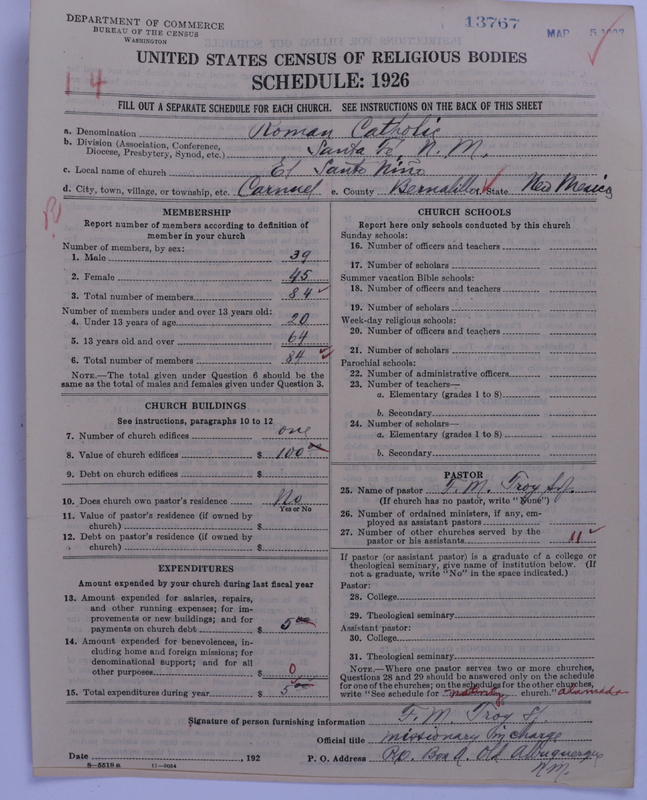 DEPARTMENT OF COMMERCE
BUREAU OF THE CENSUS
WASHINGTON
13767
MAR 5
14
UNITED STATES CENSUS OF RELIGIOUS BODIES
SCHEDULE: 1926
FILL OUT A SEPARATE SCHEDULE FOR EACH CHURCH. SEE INSTRUCTIONS ON THE BACK OF THIS SHEET
a. Denomination Roman Catholic
b. Division (Association, Conference, Diocese, Presbytery, Synod, etc.) Santa Fe N. M.
c. Local name of church El Santo Niño
d. City, town, village, or township, etc. Carnuel e. County Bernalillo f. State New Mexico
MEMBERSHIP
Report number of members according to definition of
member in your church
Number of members, by sex:
1. Male 39
2. Female 45
3. Total number of members 84
Number of members under and over 13 years old:
4. Under 13 years of age 20
5. 13 years old and over 64
6. Total number of members 84
NOTE.—The total given under Question 6 should be the
same as the total of males and females given under Question 3.
CHURCH BUILDINGS
See instructions, paragraphs 10 to 12
7. Number of church edifices one
8. Value of church edifices $ 100 00
9. Debt on church edifices $
10. Does church own pastor's residence No
Yes or No
11. Value of pastor's residence (if owned by
church) $
12. Debt on pastor's residence (if owned by
church) $
EXPENDITURES
Amount expended by your church during last fiscal year
13. Amount expended for salaries, repairs,
and other running expenses; for im-
provements or new buildings; and for
payments on church debt $ 5 00
14. Amount expended for benevolences, in-
cluding home and foreign missions; for
denominational support; and for all
other purposes $ 0
15. Total expenditures during year $ 5 00
CHURCH SCHOOLS
Report here only schools conducted by this church
Sunday schools:
16. Number of officers and teachers
17. Number of scholars
Summer vacation Bible schools:
18. Number of officers and teachers
19. Number of scholars
Week-day religious schools:
20. Number of officers and teachers
21. Number of scholars
Parochial schools:
22. Number of administrative officers
23. Number of teachers—
a. Elementary (grades 1 to 8)
b. Secondary
24. Number of scholars—
a. Elementary (grades 1 to 8)
b. Secondary
PASTOR
25. Name of pastor F. M. Troy S.J.
(If church has no pastor, write "None")
26. Number of ordained ministers, if any, em-
ployed as assistant pastors
27. Number of other churches served by the
pastor or his assistants 11
If pastor (or assistant pastor) is a graduate of a college or
theological seminary, give name of institution below. (If
not a graduate, write "No" in the space indicated.)
Pastor:
28. College
29. Theological seminary
Assistant pastor:
30. College
31. Theological seminary
NOTE.—Where one pastor serves two or more churches,
Questions 28 and 29 should be answered only on the schedule
for one of the churches; on the schedules for the other churches,
write "See schedule for nativity church." alameda
Signature of person furnishing information F. M. Troy SJ.
Official title missionary in charge
Date , 192 P. O. Address P.O. Box A. Old Albuquerque
N.M.
8—5518a 11—9034